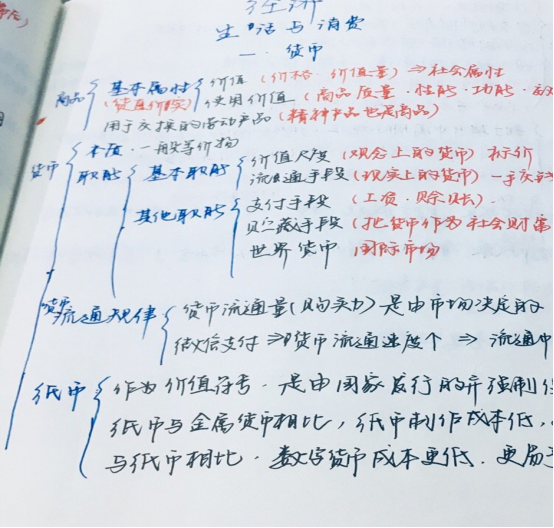 经济
生活与消费
一、货币
商品 基本属性 价值（价格、价值量）⇒社会属性
使用价值（商品质量、性能、功能、
用于交换的劳动产品（精神产品也是商品）
货币 本质：一般等价物
职能 基本职能 价值尺度（观念上的货币）标价
流通手段（现实上的货币）一手交
其他职能 支付手段（工资、赊账）
贮藏手段（把货币作为社会财富
世界货币 国际市场
货币流通规律 货币流通量（购买力）是由市场决定的
微信支付⇒货币流通速度个⇒流通中
纸币 作为价值符号，是由国家发行的并强制
纸币与金属货币相比，纸币制作成本低，
与纸币相比，数字货币成本更低，更易于